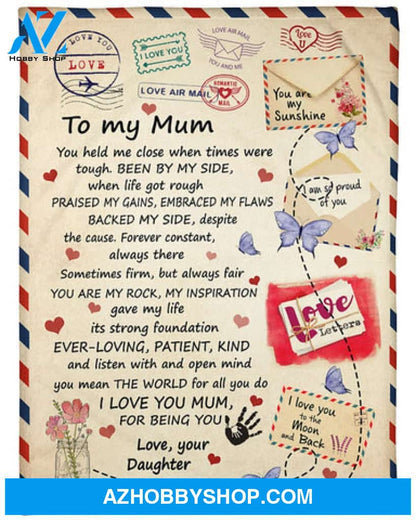 AZ
Hobby Shop
I LOVE YOU
LOVE
I LOVE YOU
LOVE AIR MAIL
YOU AND ME
LOVE
U
LOVE AIR MAIL
ROMANTIC
MAIL
You are
my
Sunshine
To my Mum
You held me close when times were
tough. BEEN BY MY SIDE,
when life got rough
PRAISED MY GAINS, EMBRACED MY FLAWS
BACKED MY SIDE, despite
the cause. Forever constant,
always there
Sometimes firm, but always fair
YOU ARE MY ROCK, MY INSPIRATION
gave my life
its strong foundation
EVER-LOVING, PATIENT, KIND
and listen with and open mind
you mean THE WORLD for all you do
I LOVE YOU MUM,
FOR BEING YOU
Love, your
Daughter
I am so proud
of you
Love
Letters
I love you
to the
Moon
and Back
AZHOBBYSHOP.COM